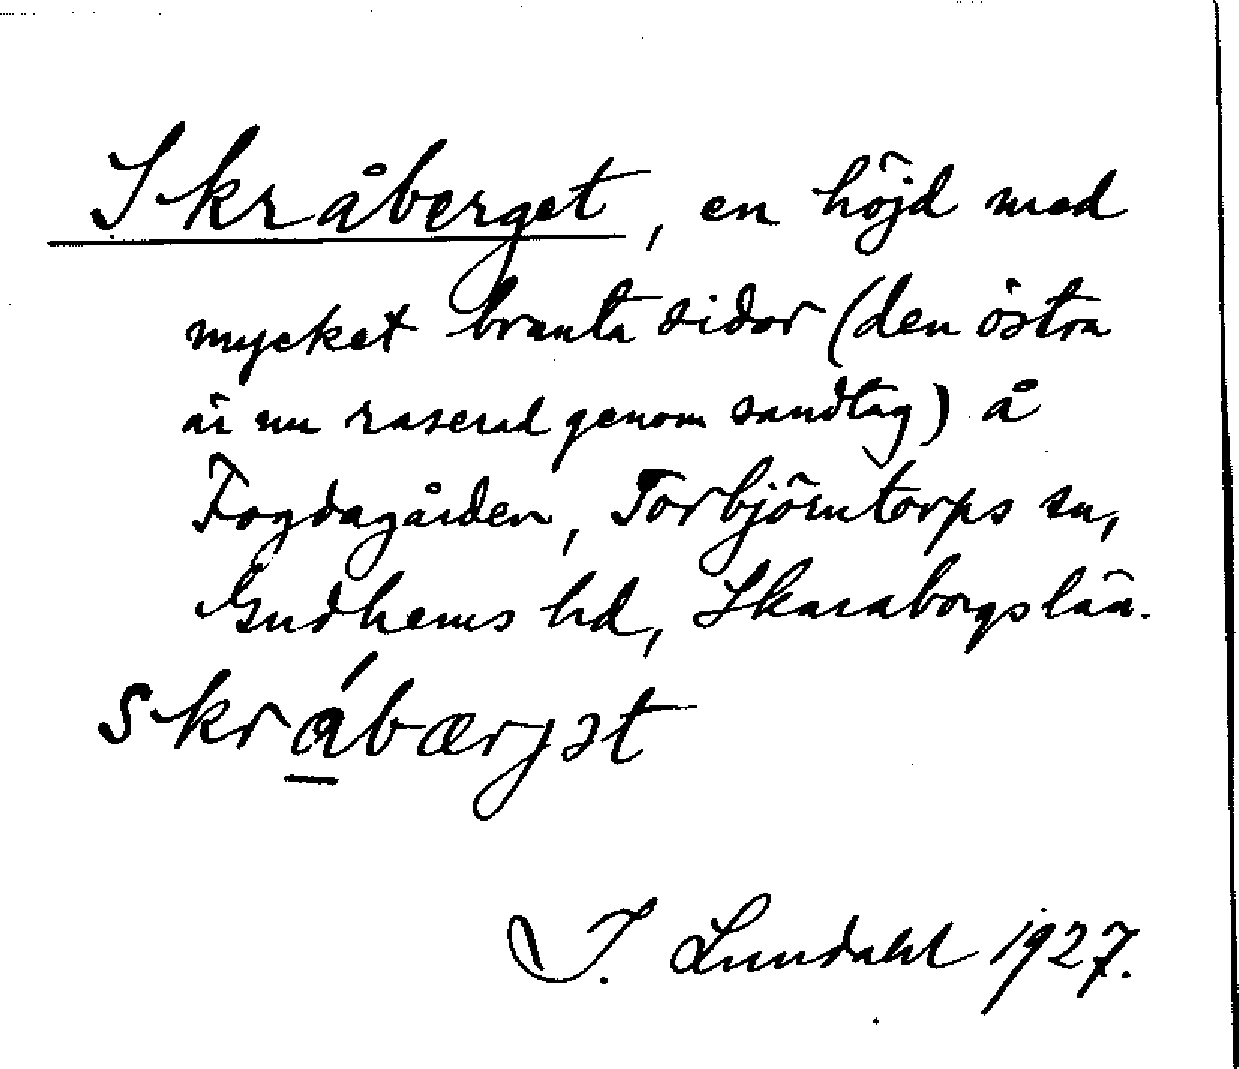 Skråberget, en höjd med
mycket branta sidor (den östra
är nu raserad genom sandtag) å
Fogdagården, Torbjörntorps sn,
Gudhems hd, Skaraborgs län.
skrábærjət
I. Lundahl 1927.